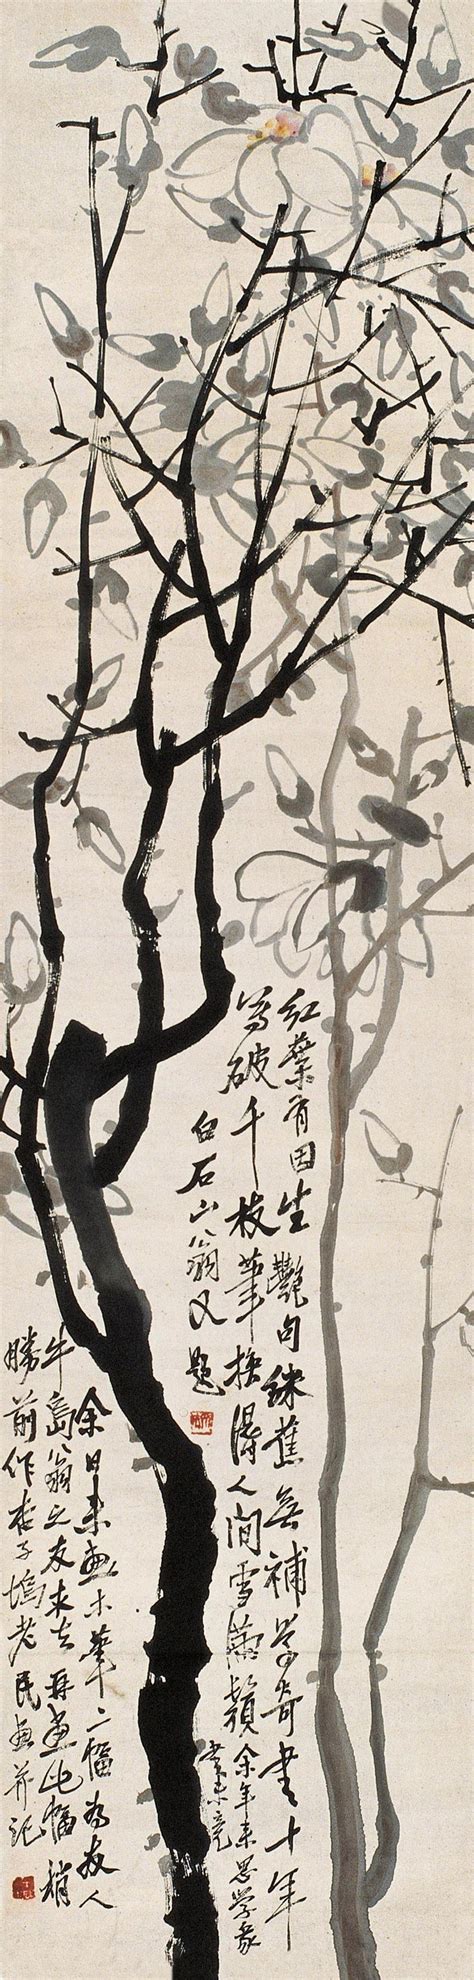 紅葉有因生艷句綠蕉無補學奇書十年
寫破千枝筆換得人間雪滿顛余年來思學篆
書未
白石山翁又題
余日來畫木筆二幅為友人
牛島翁之友求去再畫此幅稍
勝前作杏子塢老民畫并記